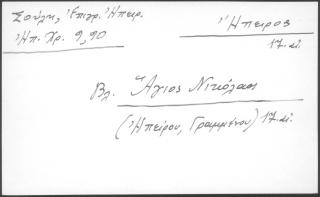 Σούλη, Ἐπιγρ. Ἠπειρ.
Ἠπ. Χρ. 9, 90
Ἤπειρος
17. αἰ.
Βλ. Ἅγιος Νικόλαος
(Ἠπείρου, Γραμμένου) 17. αἰ.